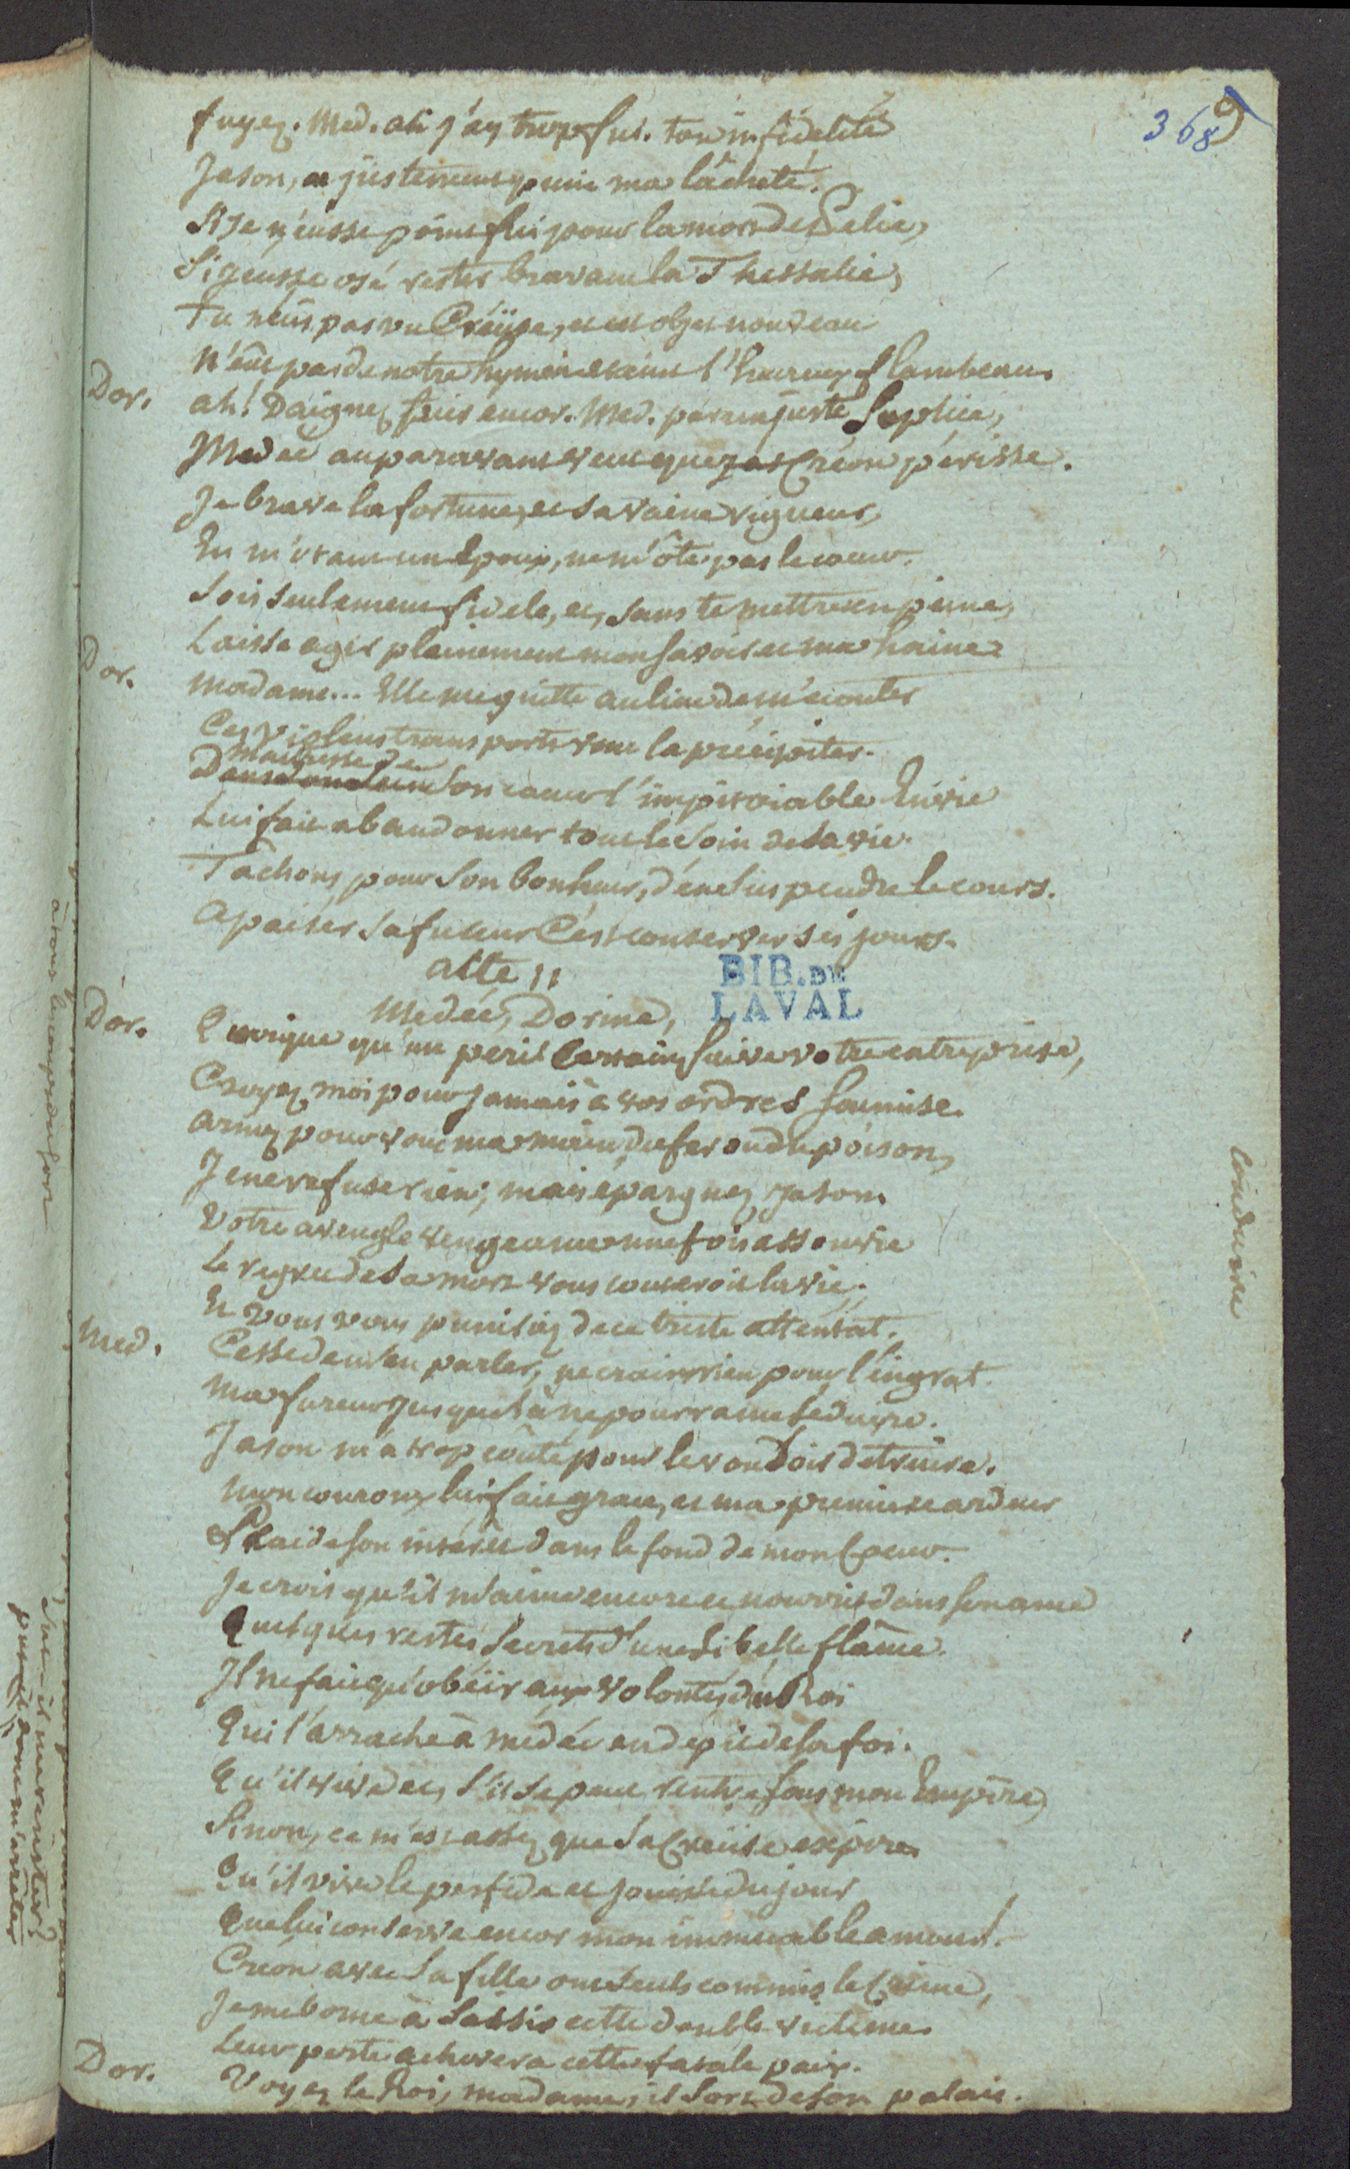 3689
fuyez. Med. ah j'ay trop fui. ton infidelité
Jason, a justement puni ma lâcheté.
Si Je n'eusse point fui pour la mort de Pelie,
Si jeusse osé rester bravant la Thessalie,
Tu n'eus pas vu Creüse, et cet objet nouveau
N'eût pas de notre hymen eteint l'heureux flambeau.
Dor. ah! Daignez fuir encor. Med. par un juste Suplice,
Medée auparavant veut que Creon périsse.
Je brave la fortune, et sa vaine rigueur,
En m'otant un Epoux, ne m'ôte pas le coeur.
Sois seulement fidele, et, sans te mettre en peine,
Laisse agir pleinement mon savoir et ma haine
Dor. Madame... Elle me quitte au lieu de m'ecouter
Ces violens transports vont la précipiter.
maitresse de
Dans son sein Son coeur l'impitoiable Envie
Lui fait abandonner tout le soin de sa vie.
Tachons pour son bonheur, d'en suspendre le cours.
Apaiser sa fureur C'est conserver ses jours.
acte II
Medée, Dorine,
BIB. DE
LAVAL
Dor. Quoique qu'un peril certain suive votre entreprise,
Croyez moi pour jamais à vos ordres soumise.
Armez pour vous ma main du fer ou du poison,
Je ne refuse rien; mais epargnez Jason.
Votre aveugle vengeance une fois assouvie
Le regret de sa mort vous couteroit la vie;
Et vous vous puniriez de ce triste attentat.
Med. Cesse de m'en parler, ne crains rien pour l'ingrat.
Ma fureur jusque là ne pourra me seduire.
Jason m'a trop coûté pour le vouloir detruire.
Mon couroux lui fait grace, et ma premiere ardeur
Plaide son intérêt dans le fond de mon Coeur.
Je crois qu'il m'aime encore et nourrit dans son ame
Quelques restes secrets d'une si belle flâme.
Il ne fait qu'obéir aux volontés du Roi
Qui l'arrache à Medée en depit de sa foi.
Qu'il vive et, s'il se peut rentre sous mon Empire,
Sinon, ce m'est assez que sa Creüse expire.
Qu'il vive le perfide et jouisse du jour
Que lui conserve encor mon immuable amour.
Creon avec sa fille ont seuls commis le Crime,
Je me borne à saisir cette double victime
Leur perte achevera cette fatale paix.
Dor. Voyez le Roi, madame, il sort de son palais.
conduire